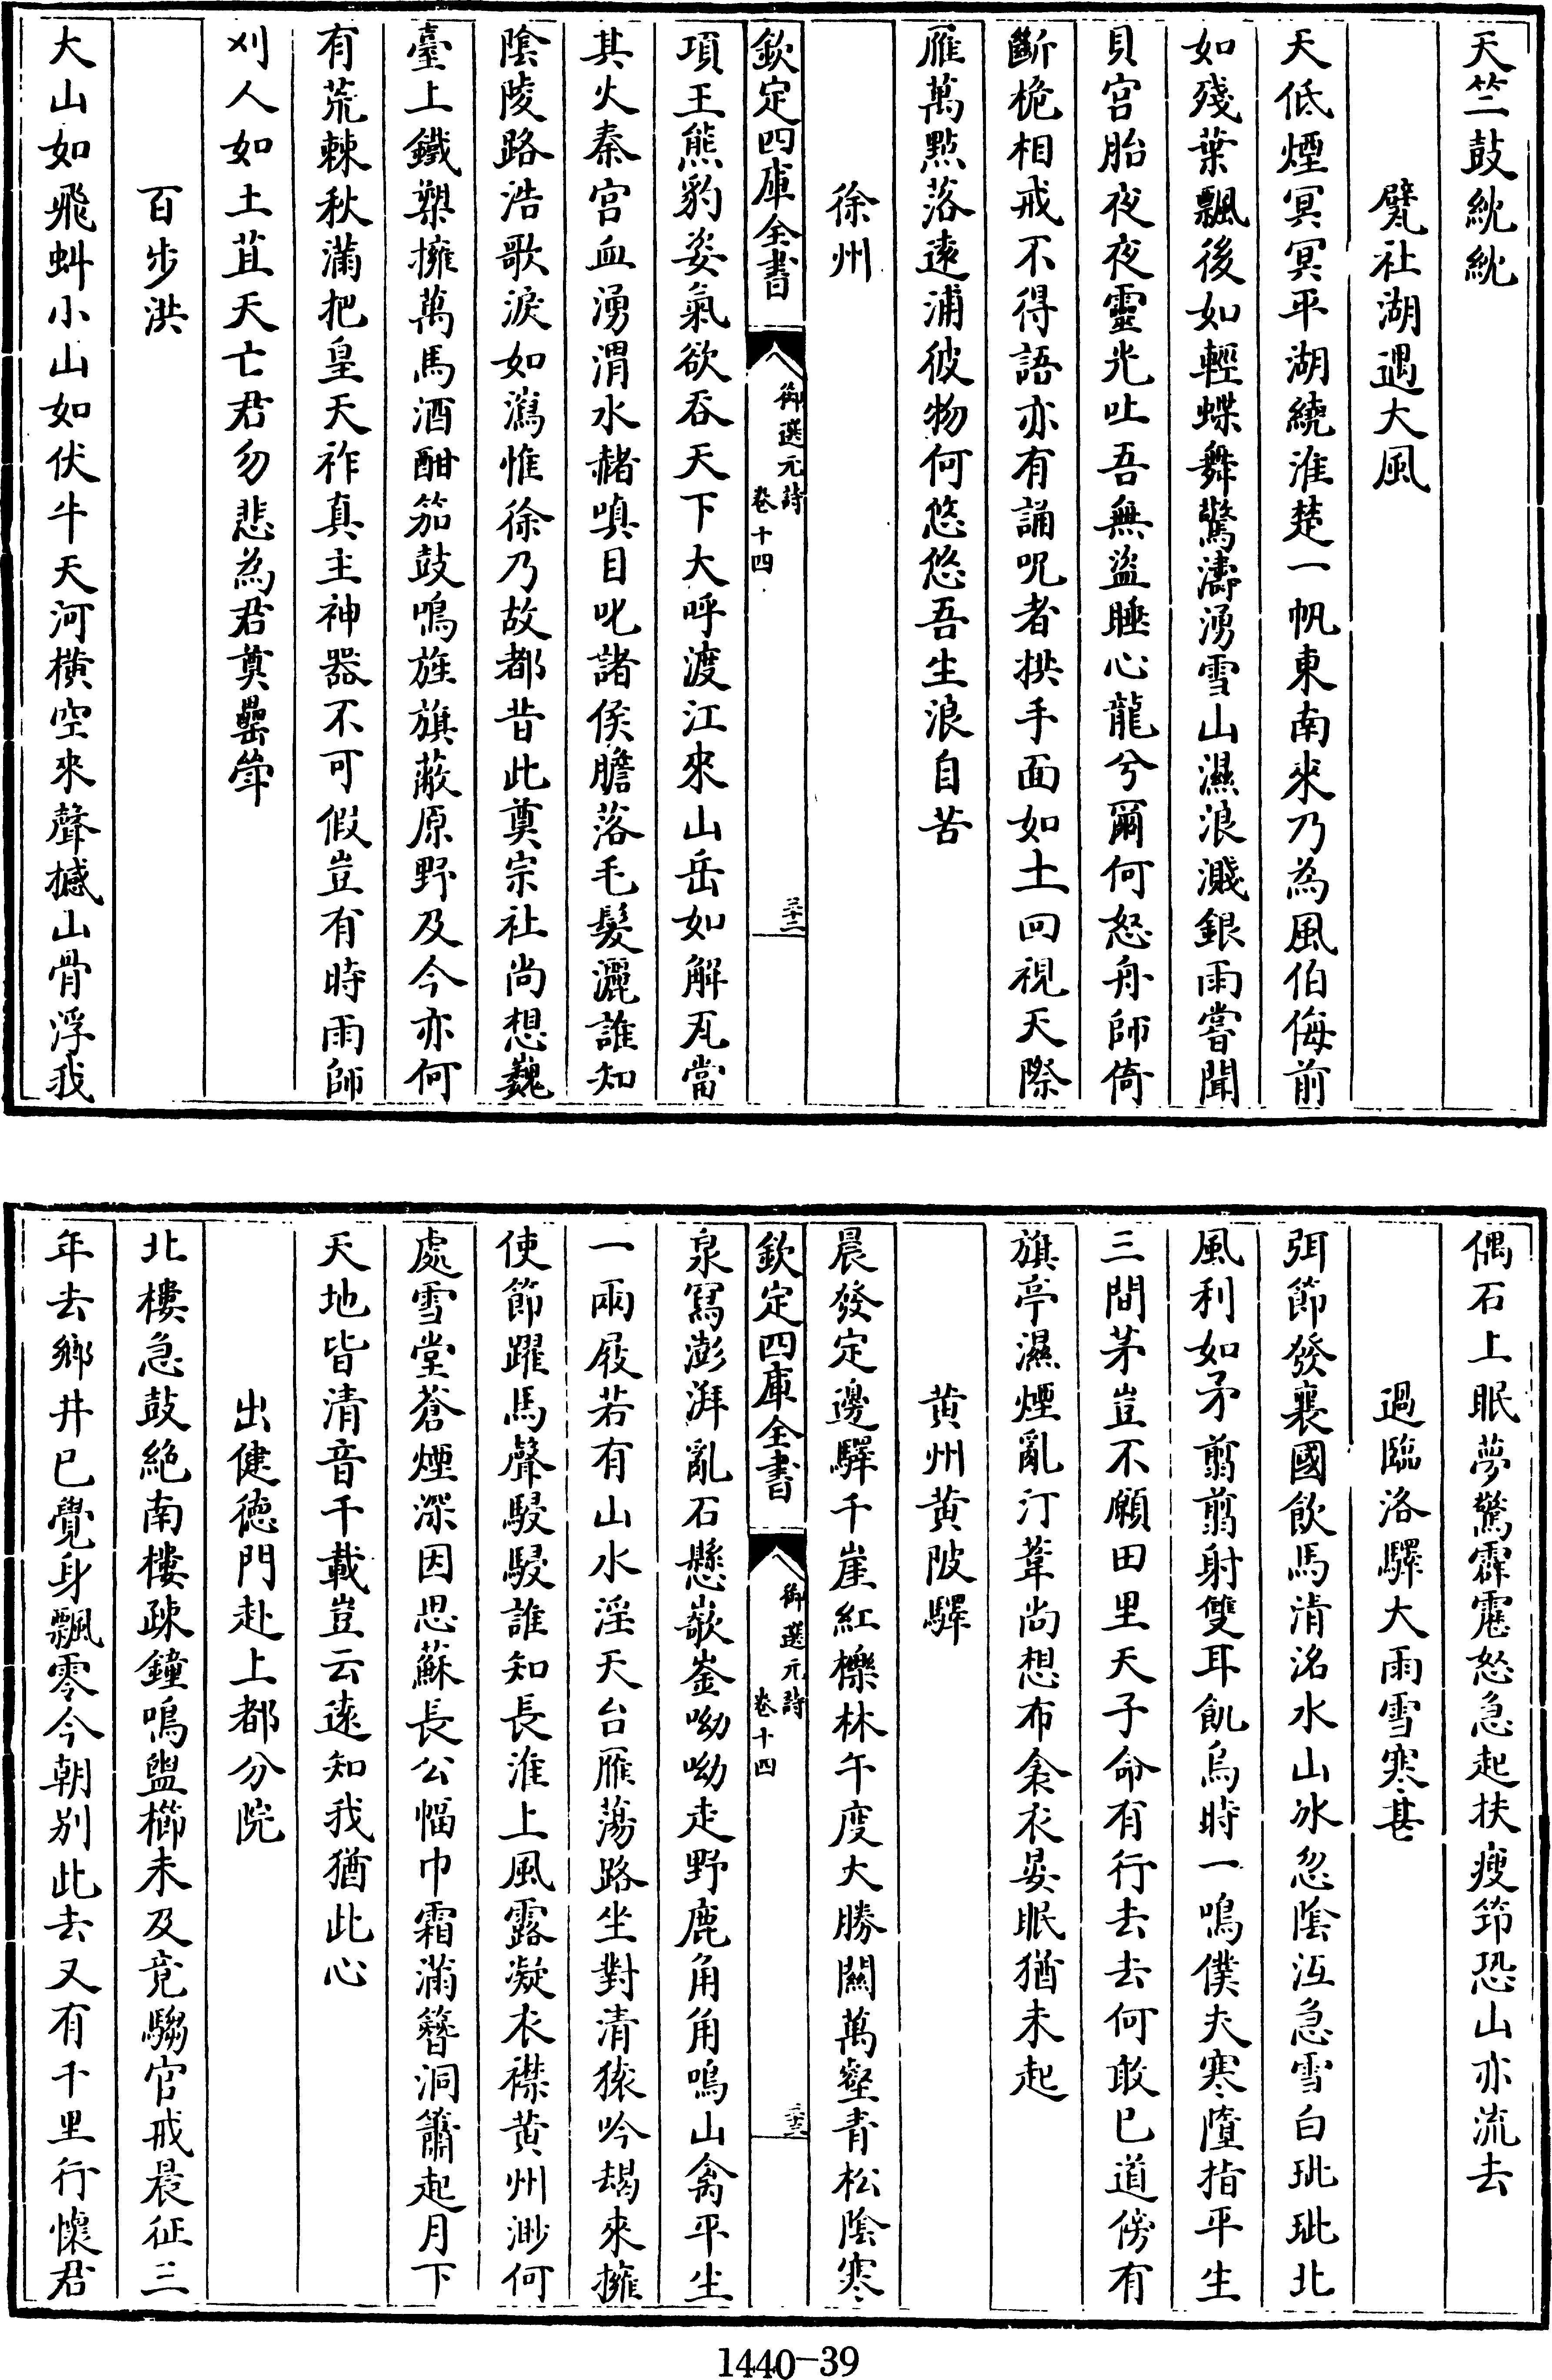 天竺鼓紞紞
甓社湖遇大風
天低煙冥冥平湖繞淮楚一帆東南來乃為風伯侮前
如殘葉飄後如輕蝶舞驚濤湧雪山濕浪濺銀雨嘗聞
貝宮胎夜夜靈光吐吾無盜睡心龍兮爾何怒舟師倚
斷桅相戒不得語亦有誦呪者拱手面如土回視天際
雁萬點落遠浦彼物何悠悠吾生浪自苦
徐州
欽定四庫全書
御選元詩
卷十四
三十二
項王熊豹姿氣欲吞天下大呼渡江來山岳如解瓦當
其火秦宮血湧渭水赭嗔目叱諸侯膽落毛髮灑誰知
陰陵路浩歌淚如瀉惟徐乃故都昔此奠宗社尚想巍
臺上鐵槊擁萬馬酒酣笳鼓鳴旌旗蔽原野及今亦何
有荒棘秋滿把皇天祚真主神器不可假豈有時雨師
刈人如土苴天亡君勿悲為君奠罍斝
百步洪
大山如飛虯小山如伏牛天河橫空來聲撼山骨浮我
偶石上眠夢驚霹靂怒急起扶瘦筇恐山亦流去
過臨洺驛大雨雪寒甚
弭節發襄國飲馬清洺水山冰忽陰沍急雪白玼玼北
風利如矛翦翦射雙耳飢烏時一鳴僕夫寒墮指平生
三間茅豈不願田里天子命有行去去何敢已道傍有
旗亭濕煙亂汀葦尚想布衾衣晏眠猶未起
黃州黃陂驛
晨發定邊驛千崖紅櫟林午度大勝關萬壑青松陰寒
欽定四庫全書
御選元詩
卷十四
三十三
泉寫澎湃亂石懸嶔崟呦呦走野鹿角角鳴山禽平生
一兩屐若有山水淫天台雁蕩路坐對清猿吟朅來擁
使節躍馬聲駸駸誰知長淮上風露凝衣襟黃州渺何
處雪堂蒼煙深因思蘇長公幅巾霜滿簪洞簫起月下
天地皆清音千載豈云遠知我猶此心
出健德門赴上都分院
北樓急鼓絕南樓疎鐘鳴盥櫛未及竟騶官戒晨征三
年去鄉井已覺身飄零今朝別此去又有千里行懷君
1440-39